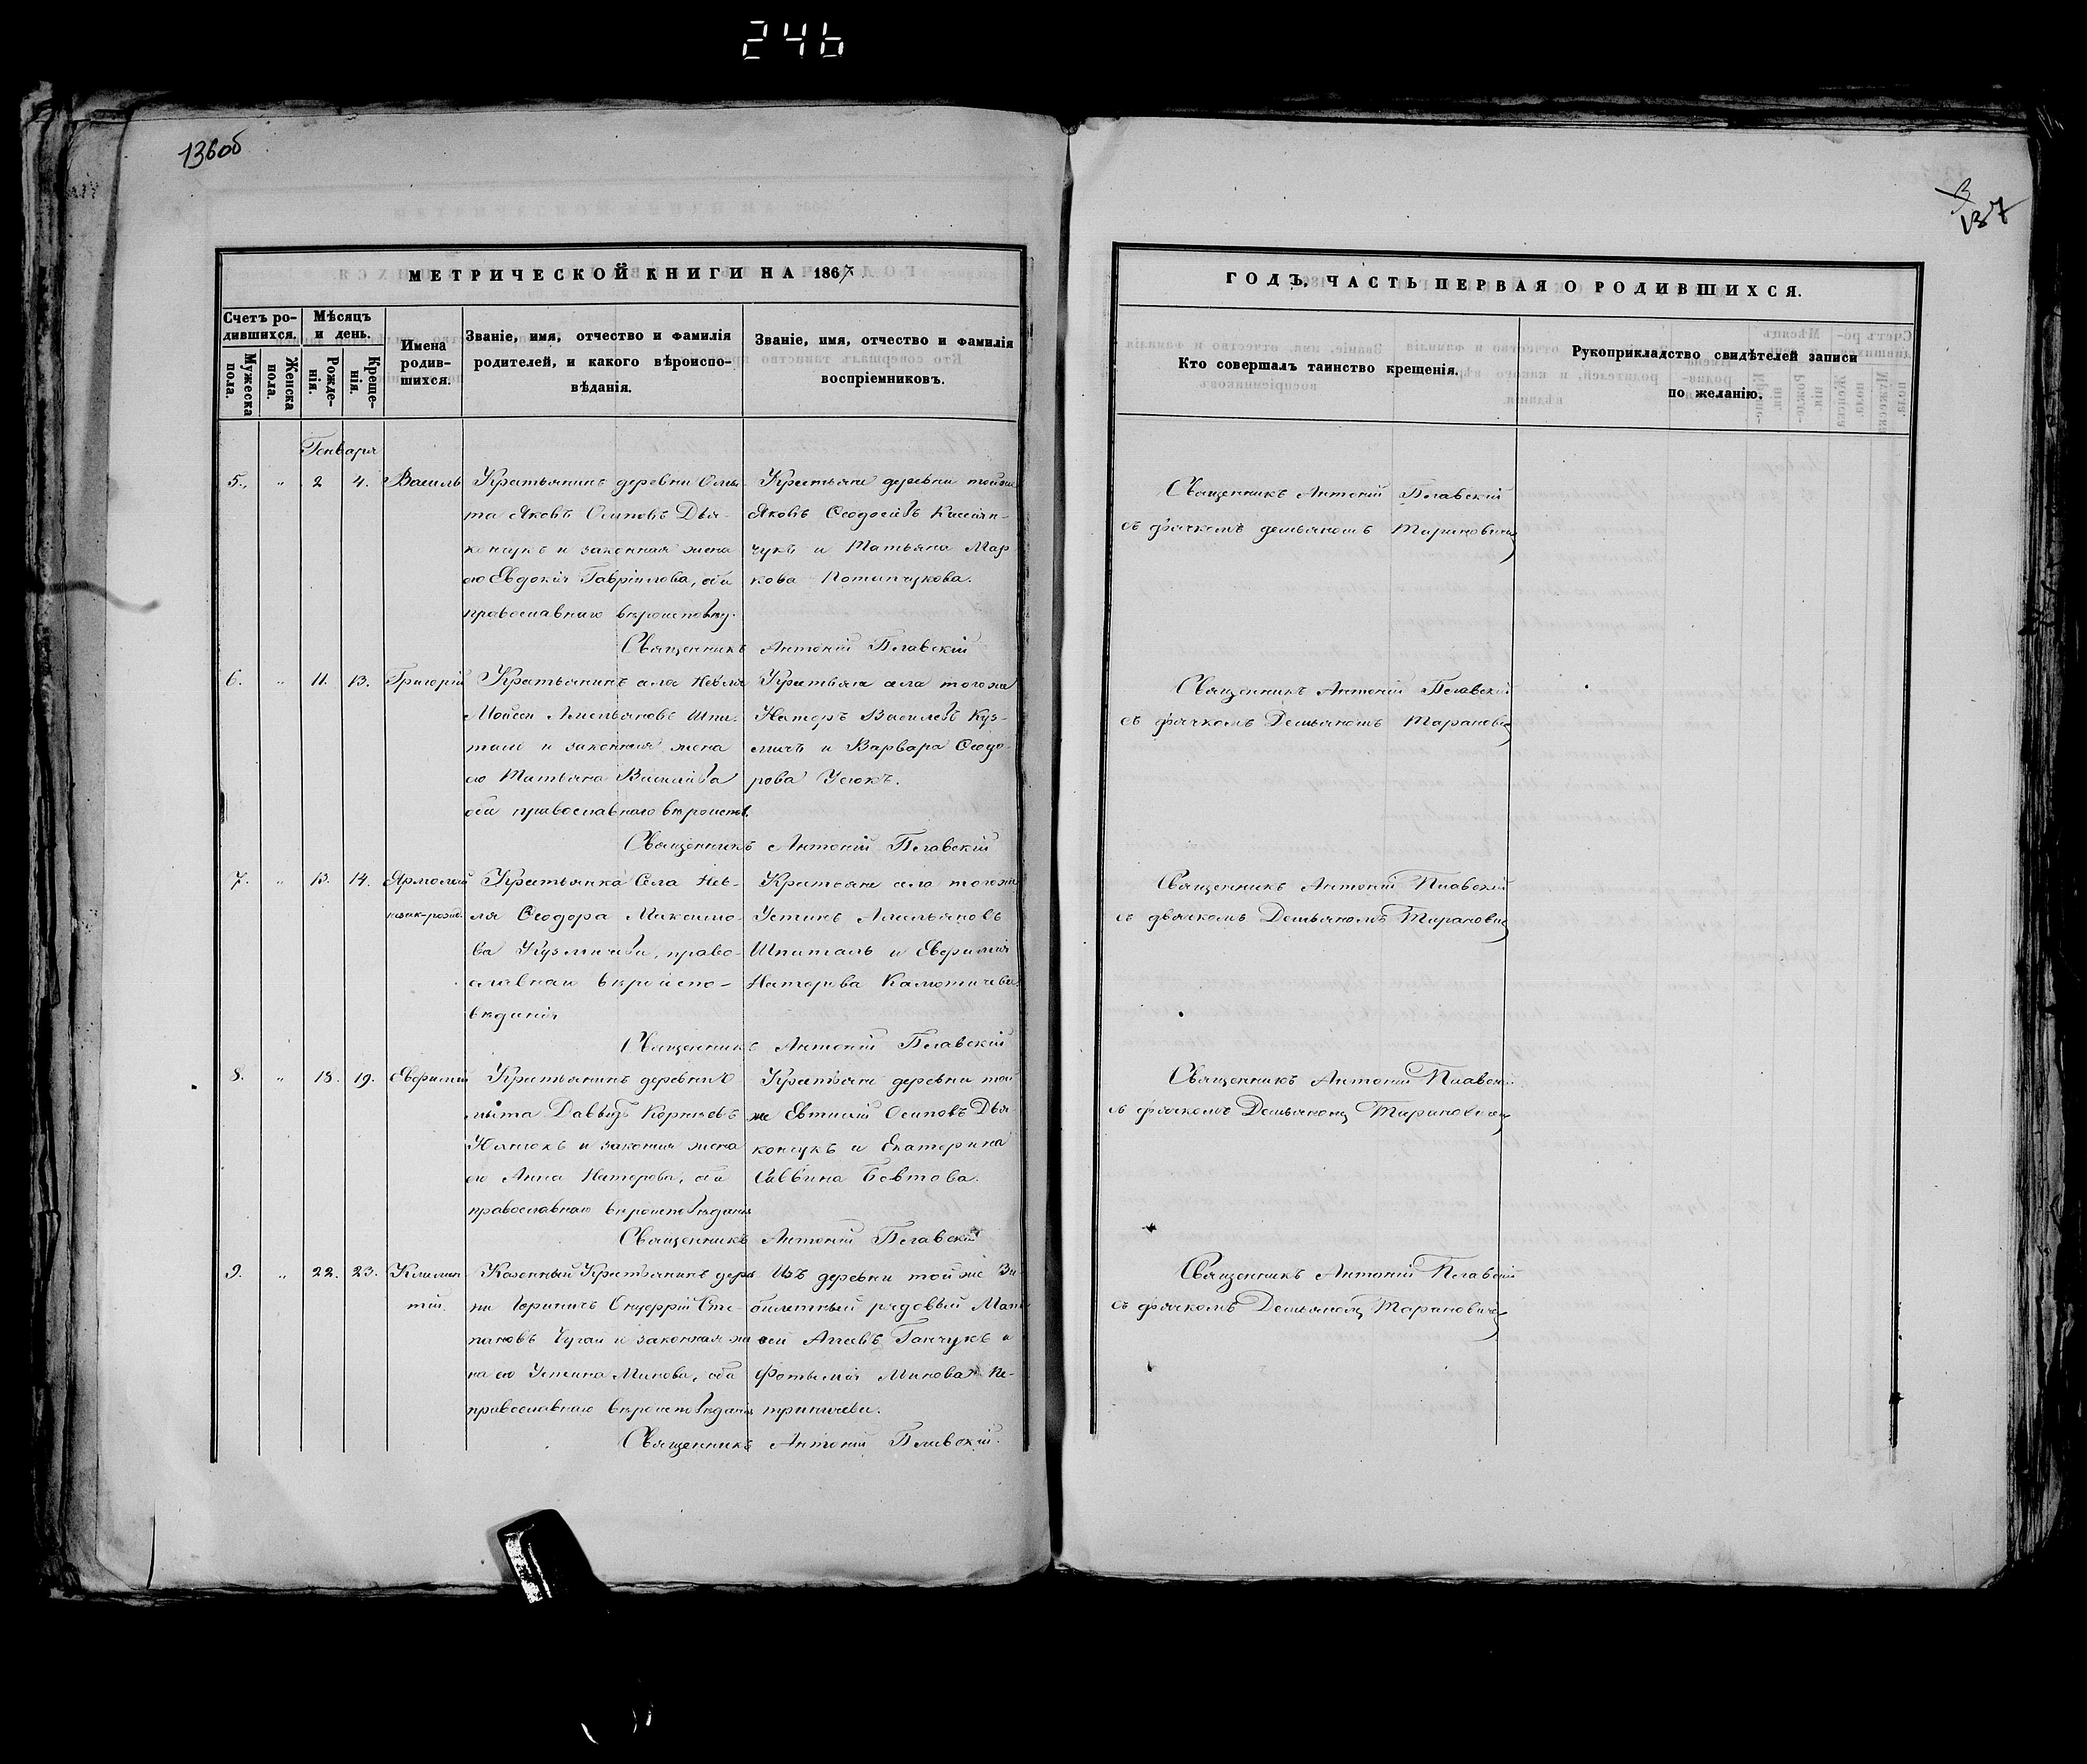 246
136об
137
МЕТРИЧЕСКОЙ КНИГИ НА 1867
Счетъ ро-
дившихся.
Мѣсяцъ
и день.
Мужеска
пола.
Женска
пола.
Рожде-
нія.
Креще-
нія.
Имена
родив-
шихся.
Званіе, имя, отчество и фамилія
родителей, и какого вѣроиспо-
вѣданія.
Званіе, имя, отчество и фамилія
воспріемниковъ.
Генваря
5. " 2 4. Василь
Крестьянинъ деревни
та Яковъ Осиповъ Дья-
кончукъ и законная жена
его Евдокія Гавріилова, оба
православнаго
Крестьяне деревни тойже
Яковъ Ѳеодосіевъ Кассіян-
чукъ и Татьяна Мар
кова Потапчукова.
Священникъ Антоній
6. " 11. 13. Григорій
Крестьянинъ села Невля
Мойсей Амельяновъ Шпи-
таль и законная жена
его Татьяна Василіева
оба православнаго вѣроиспов.
Крестьяне села тогоже
Несторъ Василіевъ Куз-
мичъ и Варвара Ѳеодо-
рова Усюкъ.
Священникъ Антоній
7. " 13. 14. Ярмолай
незак-рожд.
Крестьянка Села Нев-
ля Ѳеодора Максимо-
ва Кузмичева, право-
славнаго вѣроиспо-
вѣданія
Крестьяне села тогоже
Устинъ Амельяновъ
Шпиталь и Евфимія
Несторова
Священникъ Антоній
8. " 18. 19. Евфимій
Крестьянинъ деревни
мыта Давыдъ Корнѣевъ
и законная жена
его Анна Несторова, оба
православнаго вѣроисповѣданія
Крестьяне деревни той
же Евтихій Осиповъ Дья
кончукъ и Екатерина
Саввина Бовтова.
Священникъ Антоній
9. " 22. 23. Климен
тій.
Казенный Крестьянинъ дерев
ни Онуфрій Сте-
пановъ Чугай и законная же
на его Устина Минова, оба
православнаго вѣроисповѣданія
Изъ деревни тойже
билетный рядовый Мат
вей Агеевъ Ганчукъ и
Фотинія Минова Пе-
триничева.
Священникъ Антоній
ГОДЪ, ЧАСТЬ ПЕРВАЯ О РОДИВШИХСЯ.
Кто совершалъ таинство крещенія.
Рукоприкладство свидѣтелей записи
по желанію.
Священникъ Антоній
съ дьячкомъ Демьяномъ Тарановичемъ
Священникъ Антоній
съ дьячкомъ Демьяномъ Тарановичемъ
Священникъ Антоній
съ дьячкомъ Демьяномъ Тарановичемъ
Священникъ Антоній
съ дьячкомъ Демьяномъ Тарановичемъ
Священникъ Антоній
съ дьячкомъ Демьяномъ Тарановичемъ